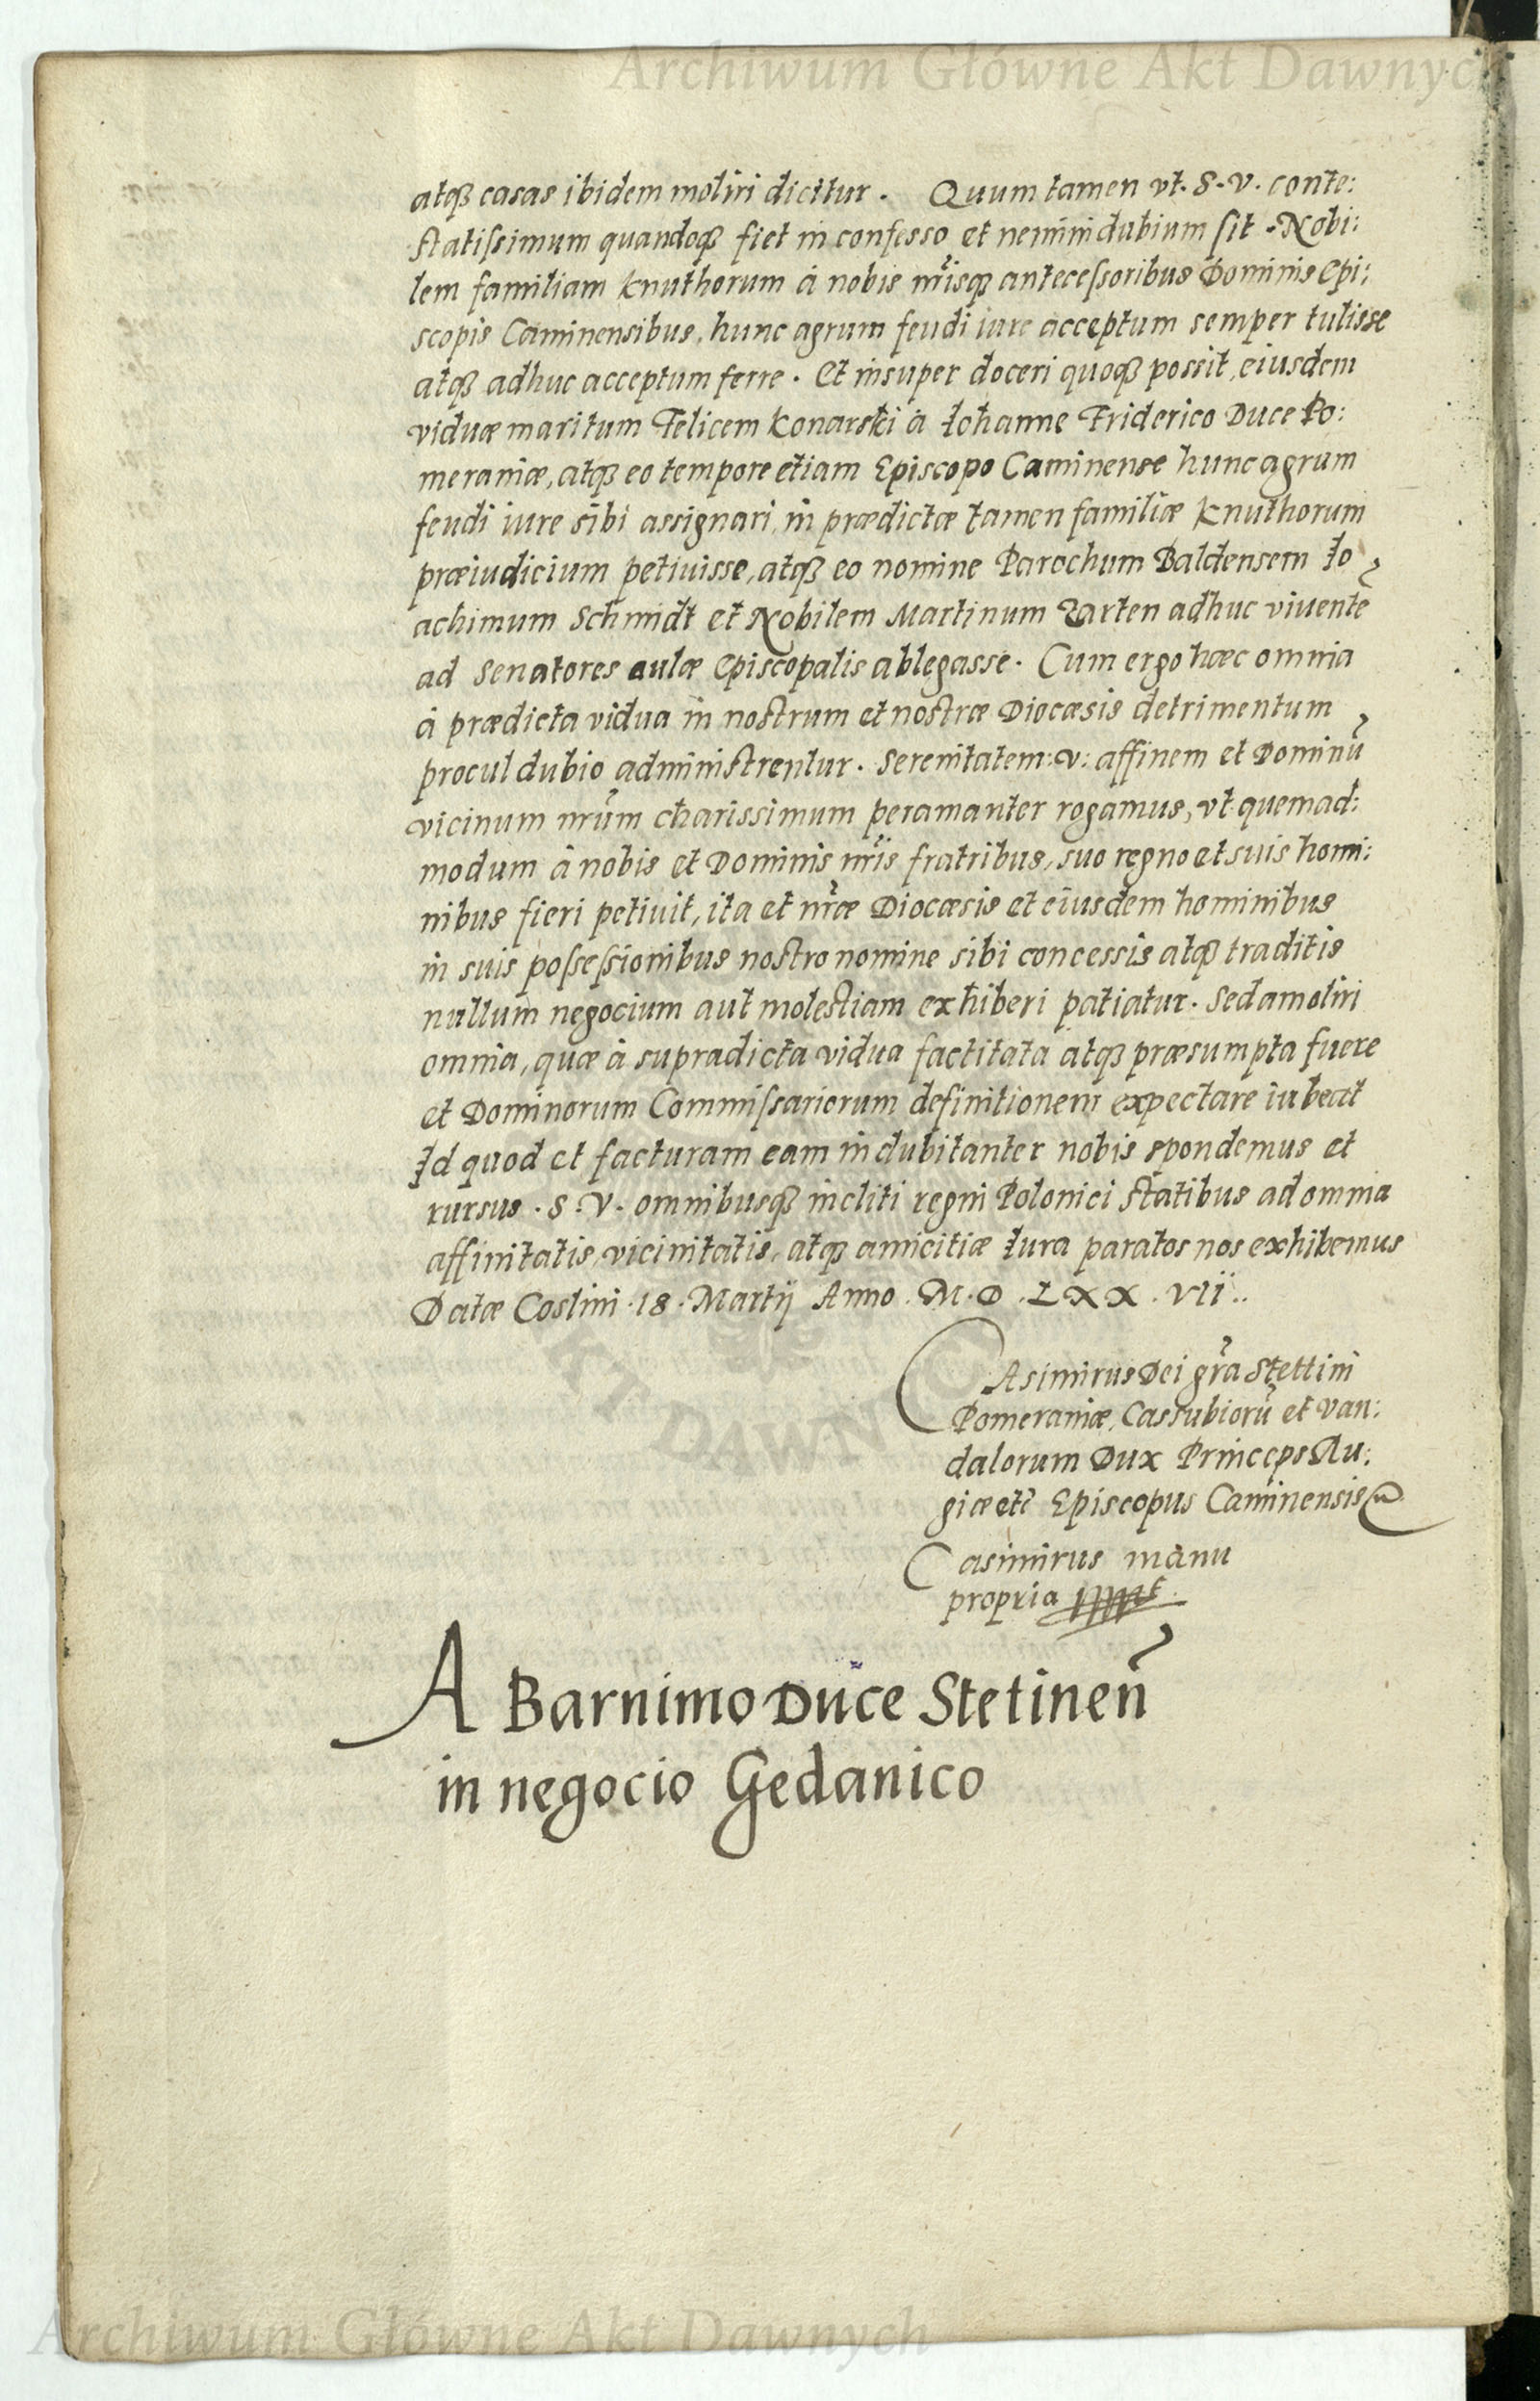 Archiwum Główne Akt Dawnych
atqȝ casas ibidem moliri dicitur. Quum tamen vt. S. V. conte:
statissimum quandoqȝ fiet in confesso et nemini dubium sit Nobi:
lem familiam Knuthorum à nobis nr̃isqȝ antecessoribus Dominis Epi:
scopis Caminensibus, hunc agrum feudi iure acceptum semper tulisse
atqȝ adhuc acceptum ferre. Et insuper doceri quoqȝ possit, eiusdem
viduæ maritum Felicem Konarski à Iohanne Friderico Duce Po:
meraniæ, atqȝ eo tempore etiam Episcopo Caminense hunc agrum
feudi iure sibi assignari, in prædictæ tamen familiæ Knuthorum
præiudicium petiuisse, atqȝ eo nomine Parochum Baldensem Io
achimum Schmidt et Nobilem Martinum Zarten adhuc viuentẽ
ad Senatores aulæ Episcopalis ablegasse. Cum ergo hæc omnia
à prædicta vidua in nostrum et nostræ Diocæsis detrimentum
procul dubio administrentur. Serenitatem: V: affinem et Dominũ
vicinum nr̃um charissimum peramanter rogamus, vt quemad:
modum à nobis et Dominis nr̃is fratribus, suo regno et suis homi:
nibus fieri petiuit, ita et nr̃æ Diocæsis et eiusdem hominibus
in suis possessionibus nostro nomine sibi concessis atqȝ traditis
nullum negocium aut molestiam exhiberi patiatur. Sed amoliri
omnia, quæ à supradicta vidua factitata atqȝ præsumpta fuere
et Dominorum Commissariorum definitionem expectare iubeat
Id quod et facturam eam indubitanter nobis spondemus et
rursus. S. V. omnibusqȝ incliti regni Polonici statibus ad omnia
affinitatis, vicinitatis, atqȝ amicitiæ Iura paratos nos exhibemus
Datæ Coslini. 18. Martij Anno. M. D. LXX. VII..
Casimirus Dei gr̃a Stettini
Pomeraniæ, Cassubiorũ et Van:
dalorum Dux Princeps Ru:
giæ etc̃ Episcopus Caminensis
Casimirus manu
propria
A Barnimo Duce Stetineñ
in negocio Gedanico
Archiwum Główne Akt Dawnych